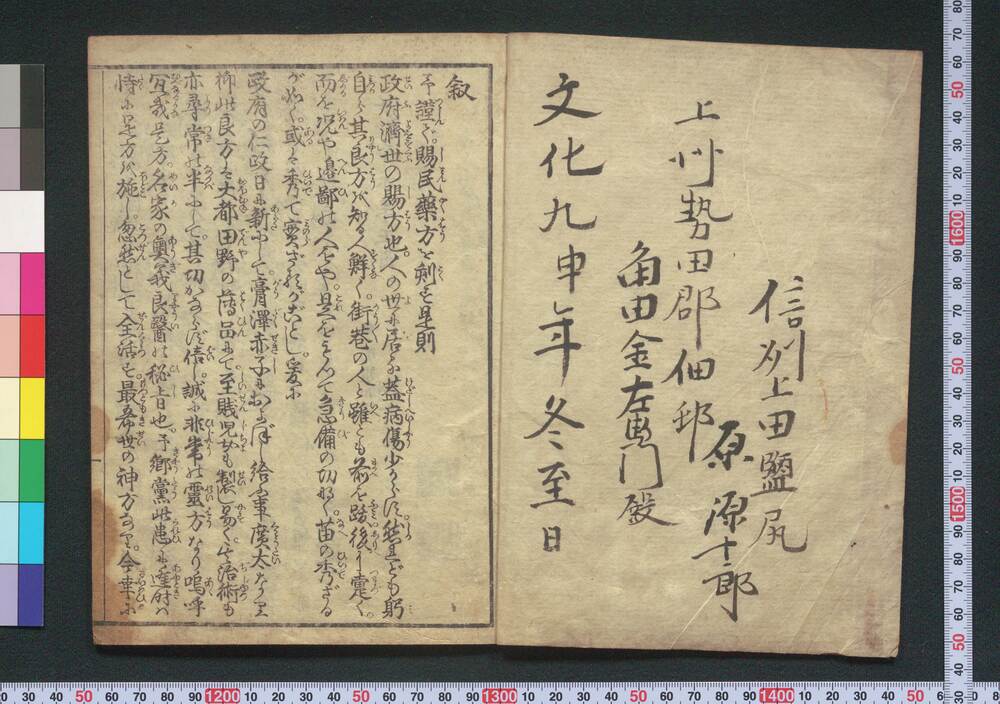 信州上田鹽尻
原源十郎
上州勢田郡佃邨
角田金左衛門殿
文化九申年冬至日
叙
予謹て賜民藥方を刻すは是則
政府濟世の賜方也人の世に居る蓋病傷少からず然ども躬
自ら其良方を知る人鮮く街巷の人と雖とも前を跋後に疐く
而を况や邉鄙の人をや是をもつて急備の功なく苗の秀ざる
が如く或は秀て實ざるがごとし爰に
政府の仁政日に新にして膏澤赤子におよぼし給ふ事廣太なり
抑此良方は大都田野の薄品にて至賎児女も製し易く其治術も
亦尋常の半にして其功かならず倍し誠に非常の靈方なり嗚呼
冝哉是方名家の奥義良醫の秘旨也予郷黨此患に逢時は
恃に是方を施し忽然として全活す最希世の神方なり今幸に